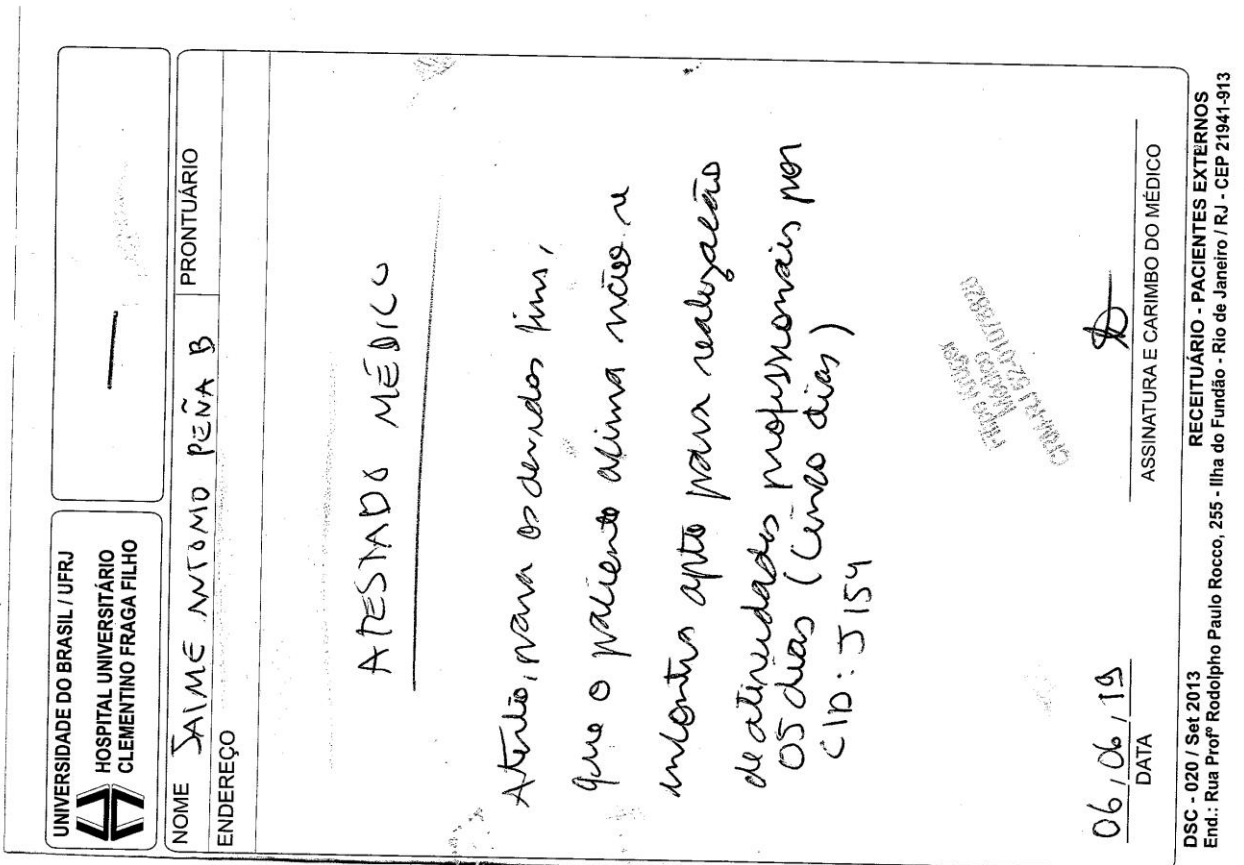 UNIVERSIDADE DO BRASIL / UFRJ
HOSPITAL UNIVERSITÁRIO
CLEMENTINO FRAGA FILHO
NOME JAIME ANTONIO PEÑA B
PRONTUÁRIO
ENDEREÇO
ATESTADO MÉDICO
Atesto, para os devidos fins,
que o paciente acima não se
encontra apto para realização
de atividades profissionais por
05 dias (cinco dias)
CID: J154
Médico
06/06/19
DATA
ASSINATURA E CARIMBO DO MÉDICO
DSC - 020 / Set 2013
RECEITUÁRIO - PACIENTES EXTERNOS
End.: Rua Profº Rodolpho Paulo Rocco, 255 - Ilha do Fundão - Rio de Janeiro / RJ - CEP 21941-913